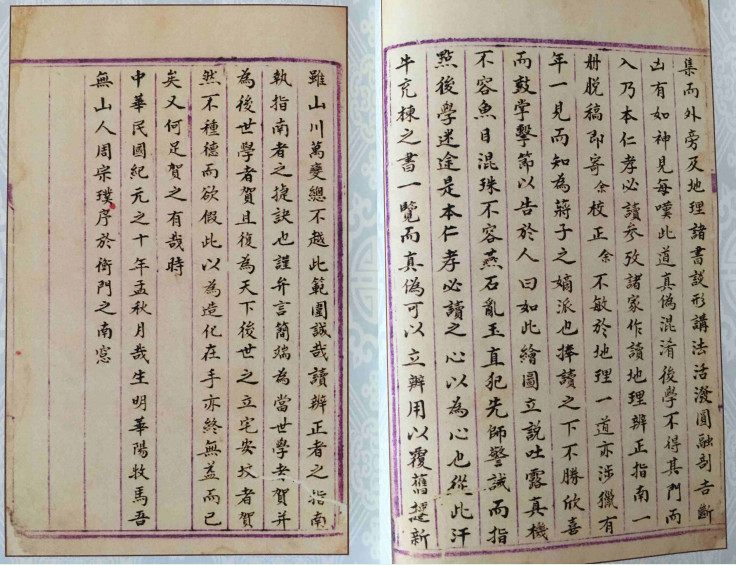 集而外旁及地理諸書談形講法活潑圓融剖吉斷
凶有如神見每嘆此道真偽混淆後學不得其門而
入乃本仁孝必讀參攷諸家作讀地理辨正指南一
册脱稿即寄余校正余不敏於地理一道亦涉獵有
年一見而知為蔣子之嫡派也捧讀之下不勝欣喜
而鼓掌擊節以告於人曰如此繪圖立說吐露真機
不容魚目混珠不容燕石亂玉直犯先師警誡而指
點後學迷途是本仁孝必讀之心以為心也從此汗
牛充棟之書一覽而真偽可以立辨用以覆舊換新
雖山川萬變總不越此範圍誠哉讀辨正者之指南
執指南者之捷訣也謹弁言簡端為當世學者賀并
為後世學者賀且復為天下後世之立宅安坟者賀
然不種德而欲假此以為造化在手亦終無益而已
矣又何足賀之有哉時
中華民國紀元之十年孟秋月哉生明華陽牧馬吾
無山人周宗璞序於衙門之南窓